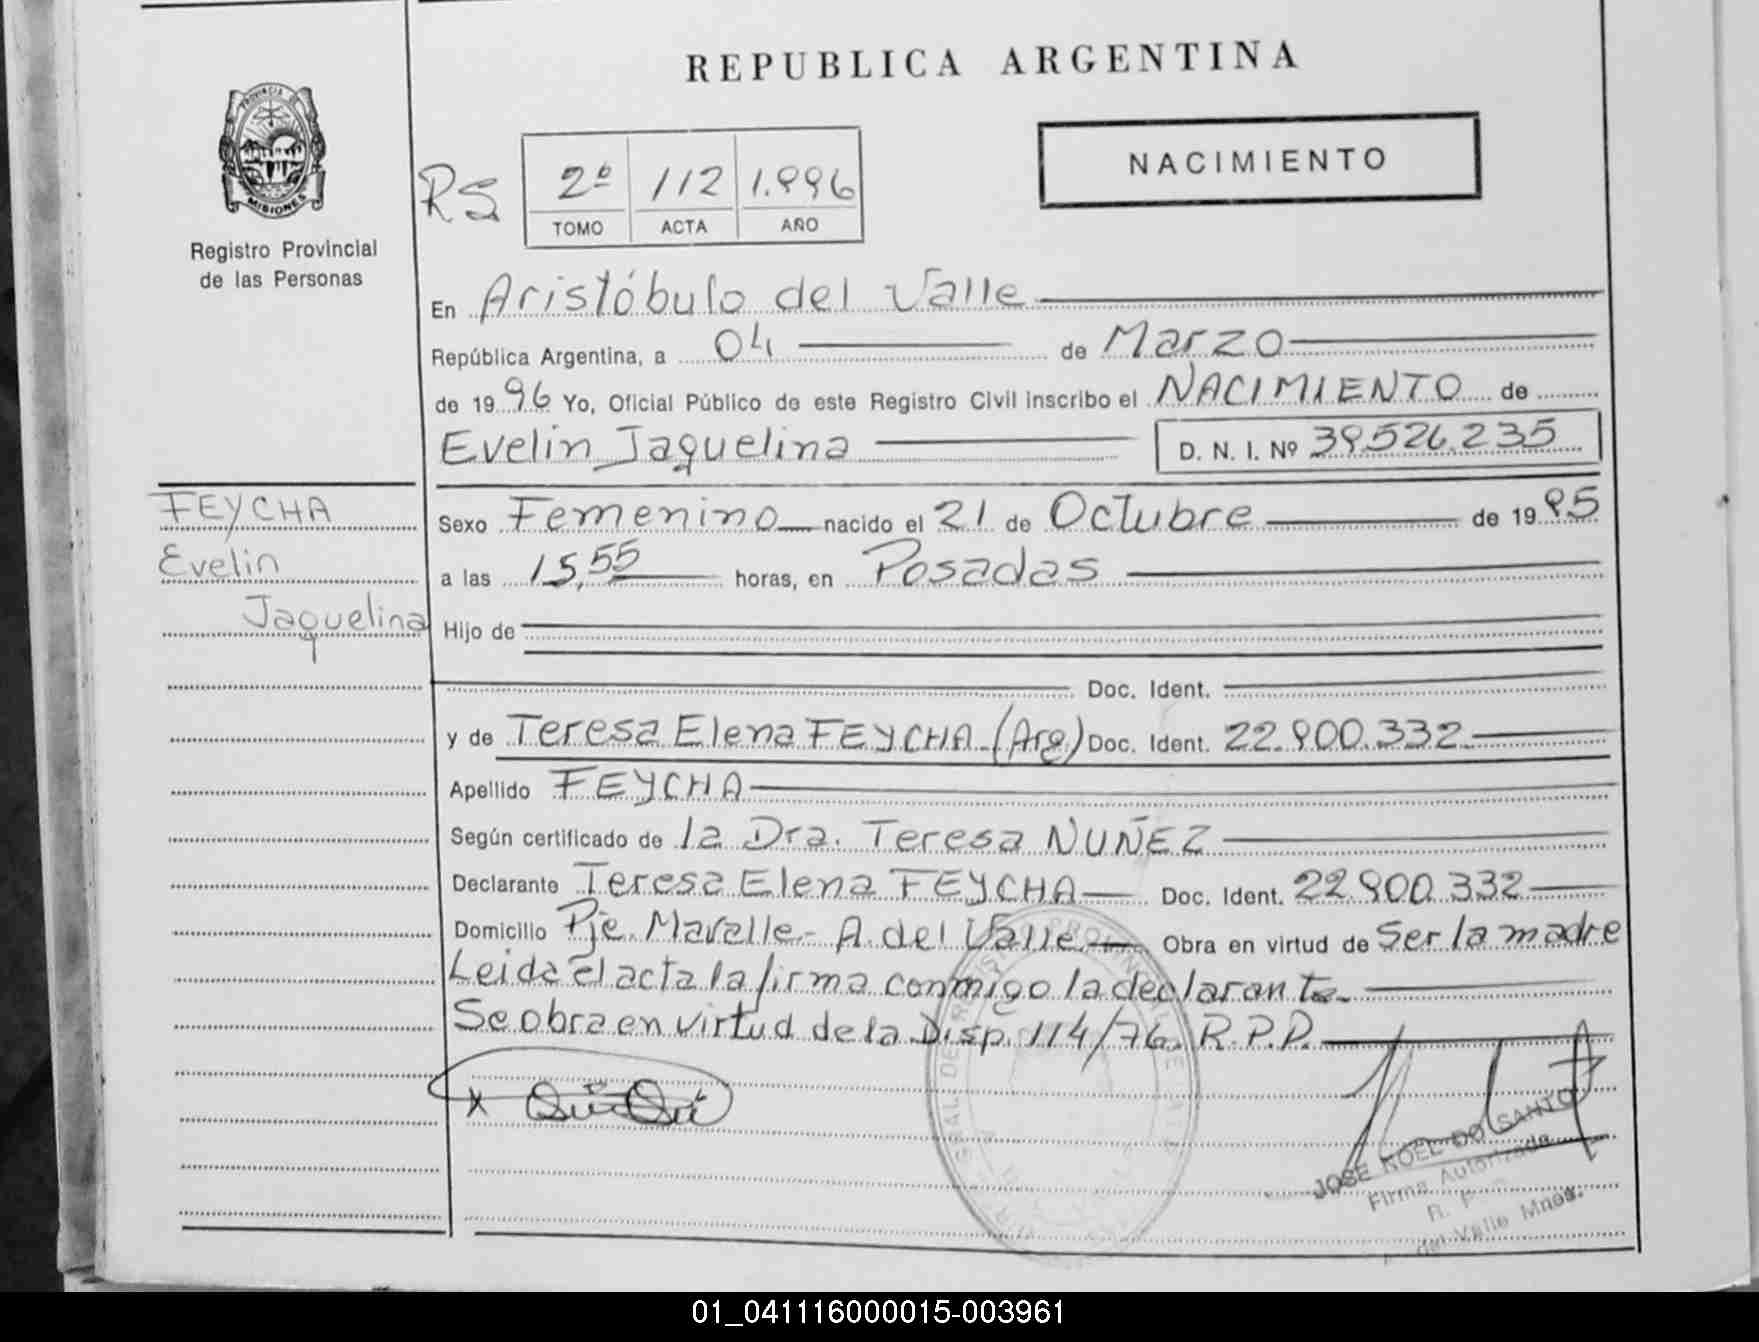 REPUBLICA ARGENTINA
PROVINCIA DE
MISIONES
Registro Provincial
de las Personas
NACIMIENTO
RS
2º 112 1.996
TOMO ACTA AÑO
En Aristóbulo del Valle
República Argentina, a 04 de Marzo
de 1996 Yo, Oficial Público de este Registro Civil inscribo el NACIMIENTO de
Evelin Jaquelina D. N. I. Nº 39.526.235
FEYCHA
Evelin
Jaquelina
Sexo Femenino nacido el 21 de Octubre de 1995
a las 15,55 horas, en Posadas
Hijo de
Doc. Ident.
y de Teresa Elena FEYCHA (Arg.) Doc. Ident. 22.900.332
Apellido FEYCHA
Según certificado de la Dra. Teresa NUÑEZ
Declarante Teresa Elena FEYCHA Doc. Ident. 22.900.332
Domicilio Pje. Mavalle - A. del Valle Obra en virtud de Ser la madre
Leida el acta la firma conmigo la declarante.
Se obra en virtud de la Disp. 114/76. R.P.P.
X
JOSE NOEL DO SANTO
Firma Autorizada
R. P.
del Valle Mnes.
01_041116000015-003961